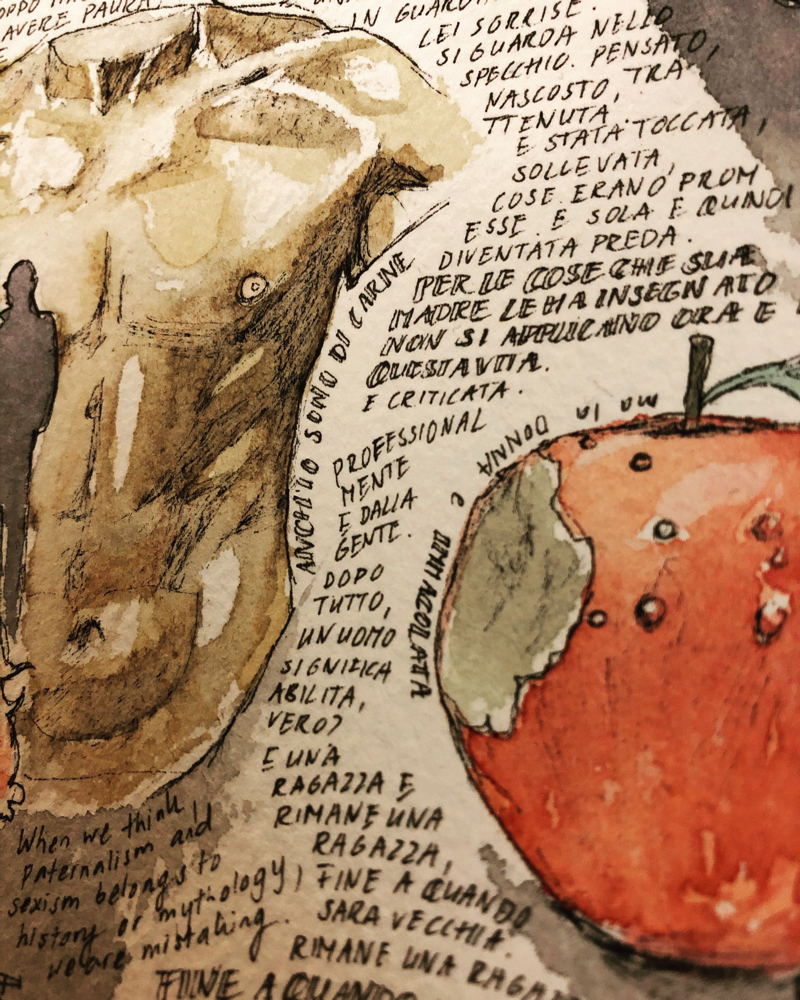 AVERE PAURA
IN GUARDA
LEI SORRISE.
SI GUARDA NELLO
SPECCHIO. PENSATO,
NASCOSTO, TRA
TTENUTA.
E STATA TOCCATA,
SOLLEVATA,
COSE ERANO PROM
ESSE. E SOLA E QUINDI
DIVENTATA PREDA.
PER LE COSE CHE SUA
MADRE LE HA INSEGNATO
NON SI APPLICANO ORA E
QUESTA VITA.
E CRITICATA.
PROFESSIONAL
MENTE
E DALLA
GENTE.
DOPO
TUTTO,
UN UOMO
SIGNIFICA
ABILITA,
VERO?
E UNA
RAGAZZA E
RIMANE UNA
RAGAZZA,
FINE A QUANDO
SARA VECCHIA.
RIMANE UNA RAGAZ
FINE A QUANDO
ANCH'IO SONO DI CARNE
ma la DONNA e IMMACOLATA
When we think
paternalism and
sexism belongs to
history or mythology,
we are mistaking.